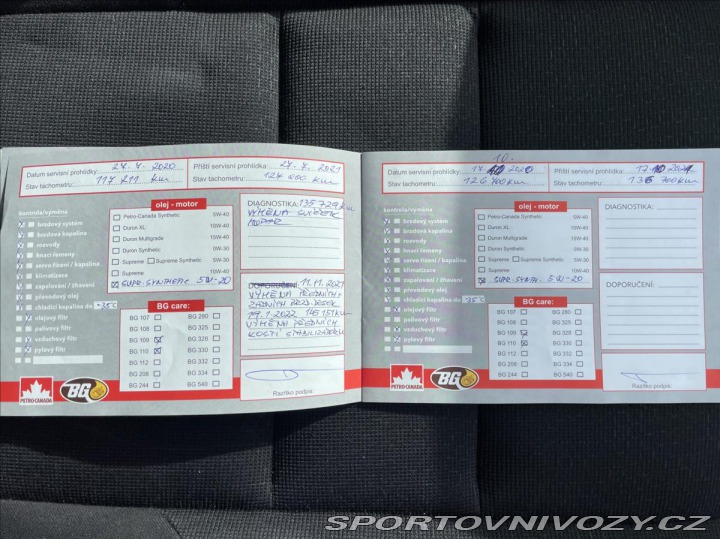 Datum servisní prohlídky: 27. 4. 2020
Příští servisní prohlídka: 27. 4. 2021
Stav tachometru: 117 211 km
Stav tachometru: 127 200 km
kontrola/výměna
brzdový systém
brzdová kapalina
rozvody
hnací řemeny
servo řízení / kapalina
klimatizace
zapalování / žhavení
převodový olej
chladící kapalina do -35°C
olejový filtr
palivový filtr
vzduchový filtr
pylový filtr
olej - motor
Petro-Canada Synthetic 5W-40
Duron XL 10W-40
Duron Multigrade 15W-40
Duron Synthetic 0W-30
Supreme Supreme Synthetic 5W-30
Supreme 10W-40
SUPR. SYNTHETIC 5W-20
BG care:
BG 107 BG 280
BG 108 BG 325
BG 109 BG 328
BG 110 BG 330
BG 208 BG 334
BG 244 BG 540
DIAGNOSTIKA: 135 729 km
VÝMĚNA SVÍČEK
MOPAR
DOPORUČENÍ: 11.11.2021
VÝMĚNA PŘEDNÍCH +
ZADNÍCH BRZD. DESEK
19.1.2022 145 151 km
VÝMĚNA PŘEDNÍCH
KOSTÍ STABILIZÁTORU
Razítko podpis:
PETRO-CANADA
BG
10.
Datum servisní prohlídky: 2020
Příští servisní prohlídka: 2021
Stav tachometru: 126 700 km
Stav tachometru: 136 700 km
kontrola/výměna
brzdový systém
brzdová kapalina
rozvody
hnací řemeny
servo řízení / kapalina
klimatizace
zapalování / žhavení
převodový olej
chladící kapalina do -35°C
olejový filtr
palivový filtr
vzduchový filtr
pylový filtr
olej - motor
Petro-Canada Synthetic 5W-40
Duron XL 10W-40
Duron Multigrade 15W-40
Duron Synthetic 0W-30
Supreme Supreme Synthetic 5W-30
Supreme 10W-40
SUPR. SYNTH. 5W-20
BG care:
BG 107 BG 280
BG 108 BG 325
BG 109 BG 328
BG 110 BG 330
BG 208 BG 334
BG 244 BG 540
DIAGNOSTIKA:
DOPORUČENÍ:
Razítko podpis:
PETRO-CANADA
BG
SPORTOVNIVOZY.CZ